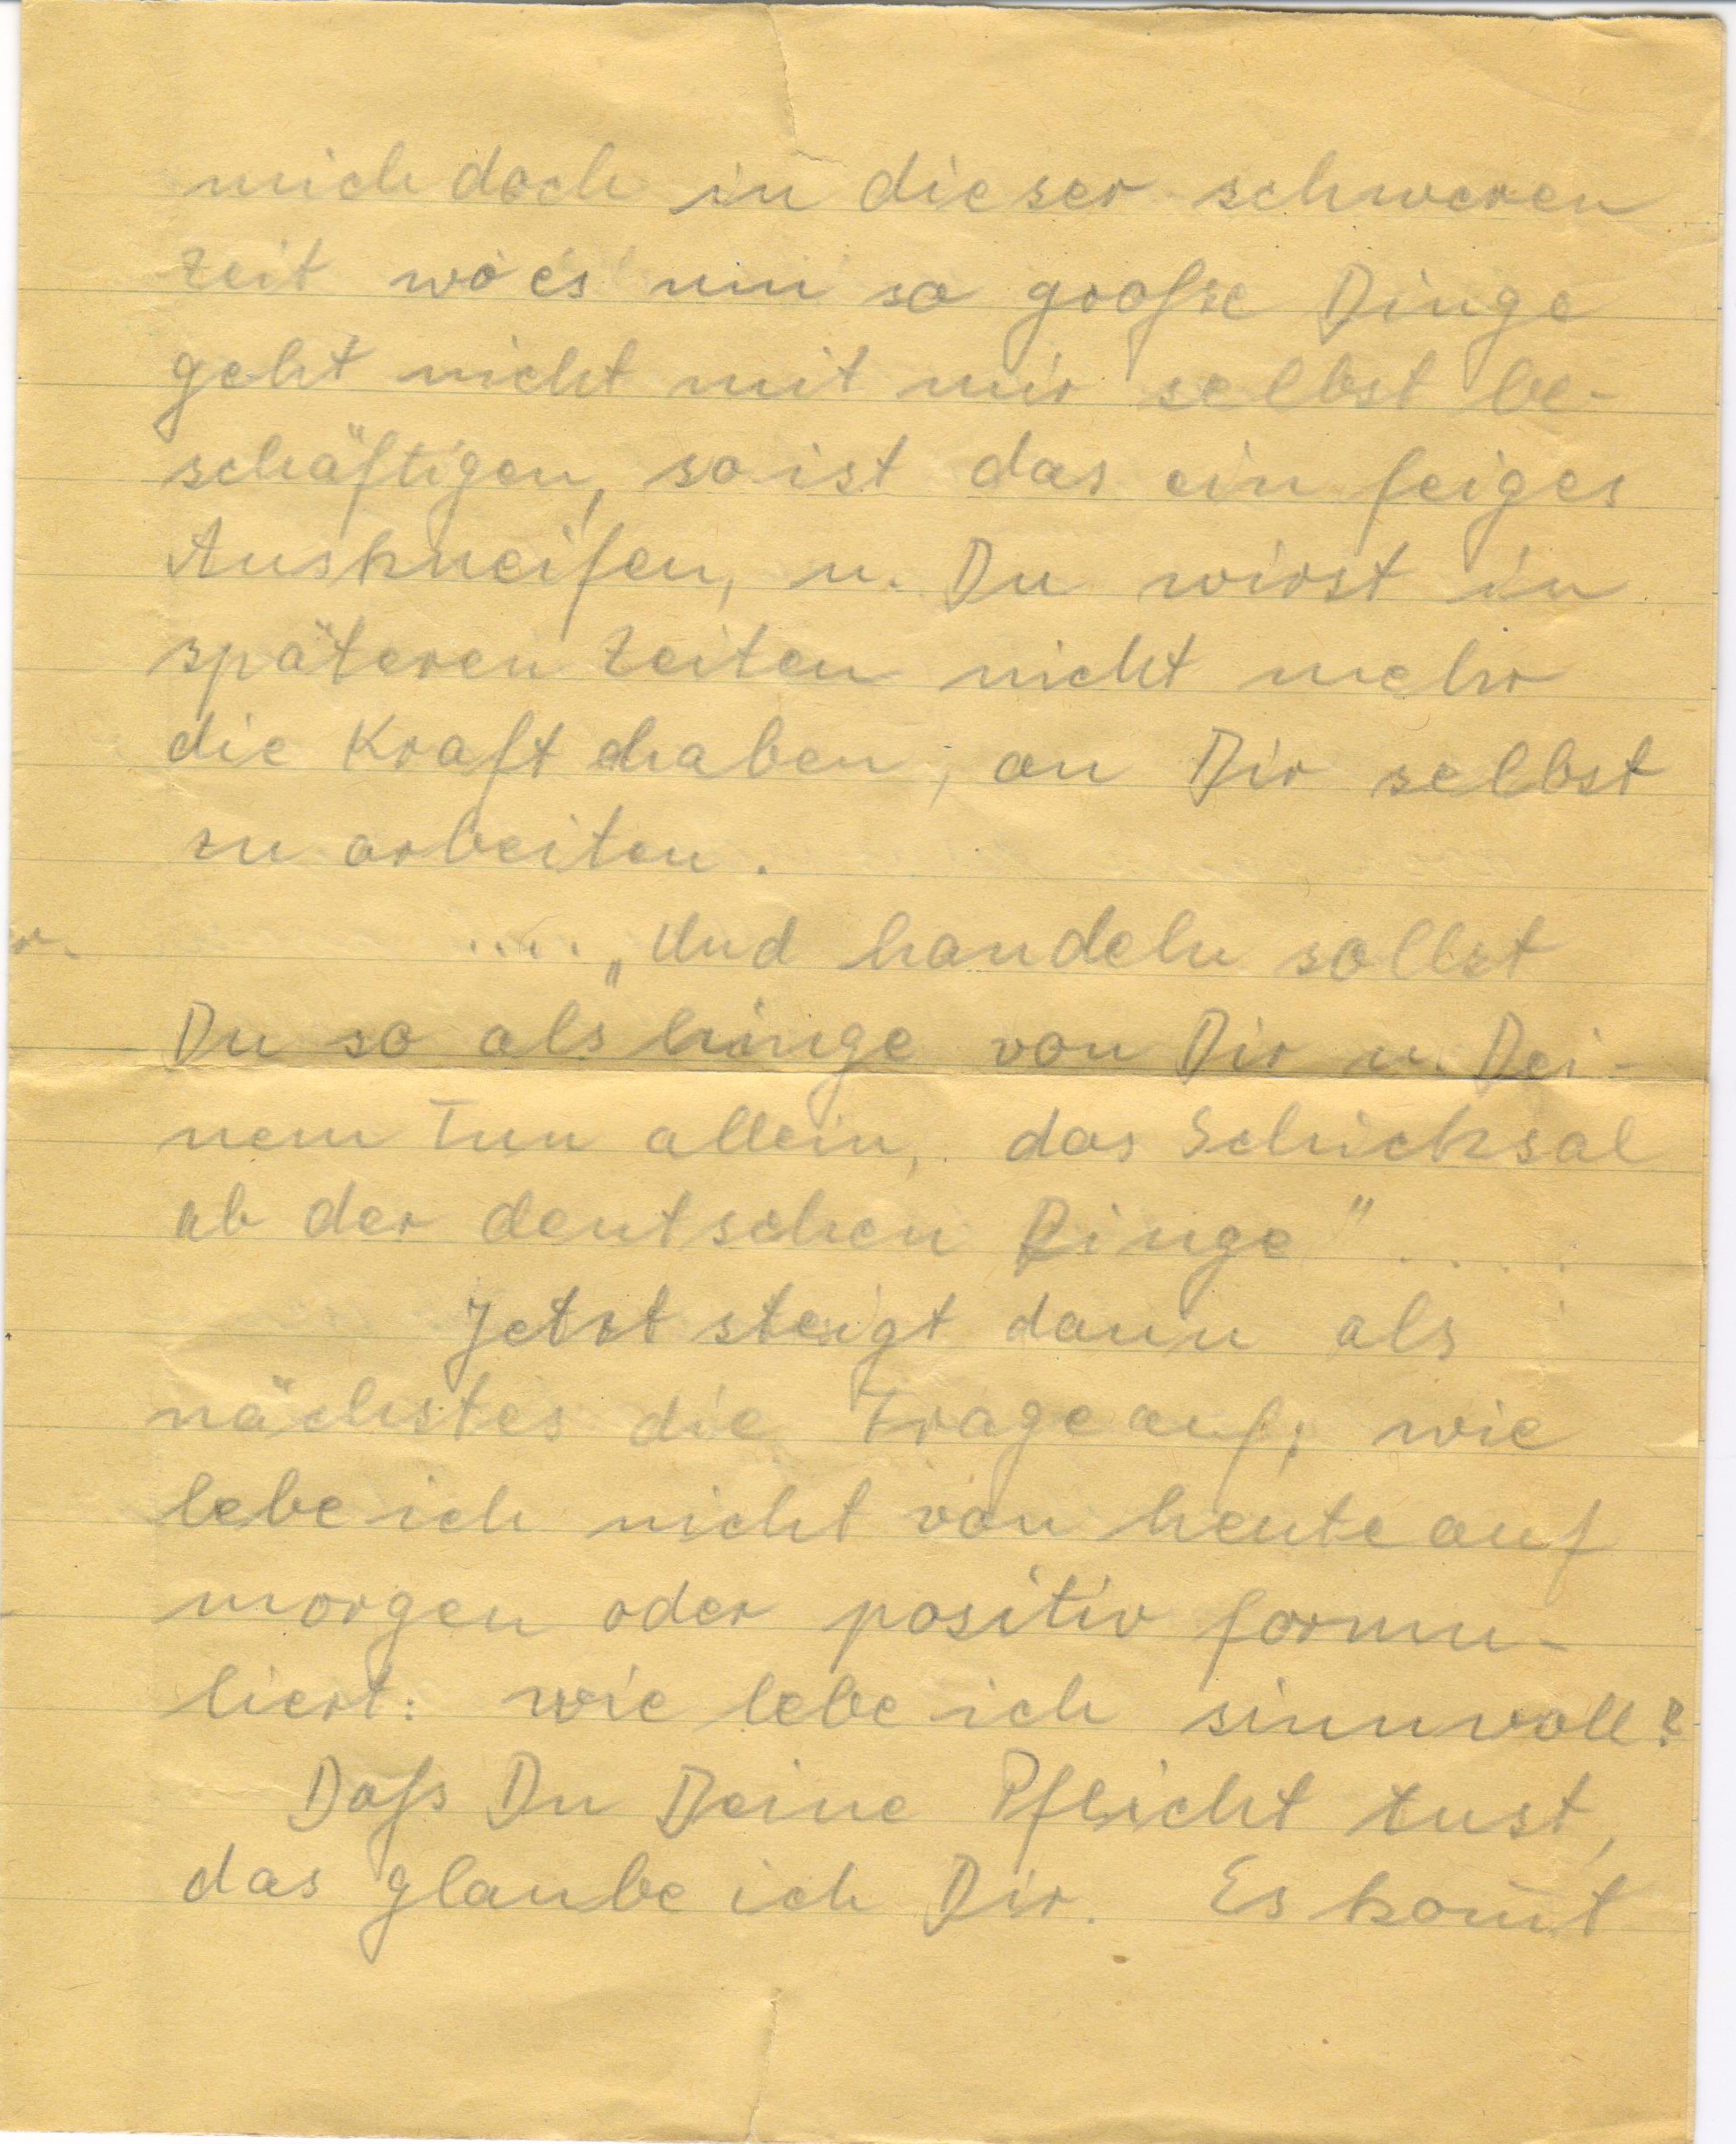 mich doch in dieser schweren
Zeit wo es um so große Dinge
geht nicht mit mir selbst be-
schäftigen, so ist das ein feiges
Auskneifen, u. Du wirst in
späteren Zeiten nicht mehr
die Kraft haben, an Dir selbst
zu arbeiten.
.... „Und handeln sollst
Du so als hinge von Dir u. Dei-
nem Tun allein, das Schicksal
ab der deutschen Dinge" .....
Jetzt steigt dann als
nächstes die Frage auf; wie
lebe ich nicht von heute auf
morgen oder positiv formu-
liert: wie lebe ich sinnvoll?
Dass Du Deine Pflicht tust,
das glaube ich Dir. Es kom̄t